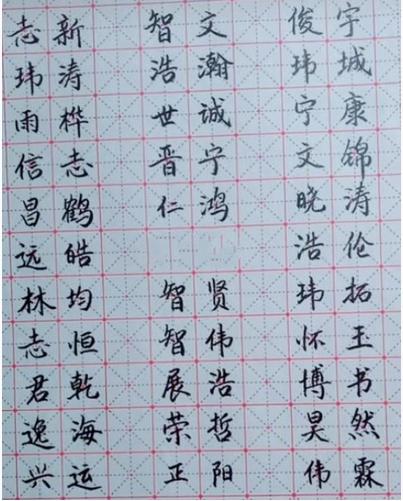 志新 智文 俊宇
玮涛 浩瀚 玮城
雨桦 世诚 宁康
信志 晋宁 文锦
昌鹤 仁鸿 晓涛
远皓 浩伦
林均 智贤 玮拓
志恒 智伟 怀玉
君乾 展浩 博书
逸海 荣哲 昊然
兴运 正阳 伟霖